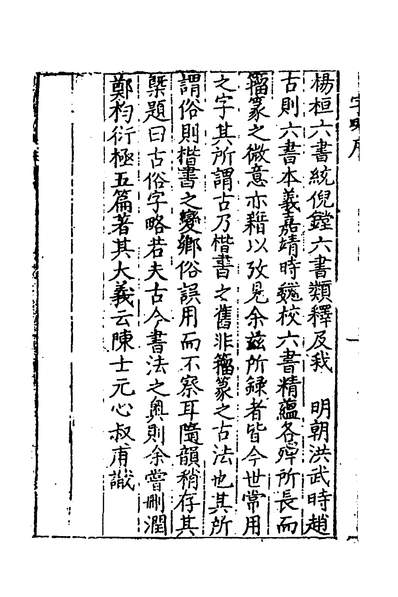 楊桓六書統倪鏜六書類釋及我　明朝洪武時趙
古則六書本義嘉靖時魏校六書精蘊各殫所長而
籀篆之微意亦藉以攷見余茲所録者皆今世常用
之字其所謂古乃楷書之舊非籀篆之古法也其所
謂俗則楷書之變鄉俗誤用而不察耳隨韻稍存其
槩題曰古俗字略若夫古今書法之奥則余嘗刪潤
鄭杓衍極五篇著其大義云陳士元心叔甫識